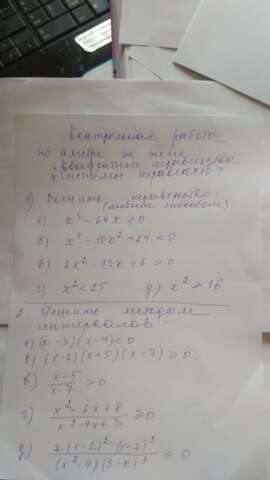 Контрольная работа
по алгебре по теме
"Квадратные неравенства
и системы неравенств"
1) Решить неравенство:
(любым способом)
а) x³ - 64x ≥ 0
б) x⁴ - 10x² + 24 < 0
в) 2x² - 13x + 6 > 0
г) x² < 25 д) x² ≥ 16
2. Решить методом
интервалов:
а) (x - 3)(x - 4) < 0
б) (x - 2)(x + 5)(x - 7) ≥ 0.
в) x - 5 / x - 7 > 0
г) x² - 6x + 8 / x² - 4x + 3 ≥ 0
д) x(x - 2)²(x - 7)³ / (x² - 4)(3 - x)⁴ ≥ 0